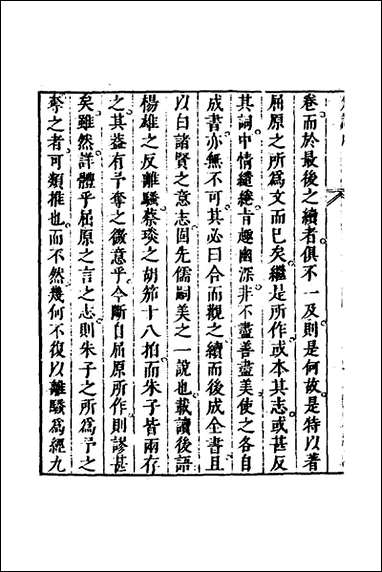 卷而於最後之續者俱不一及則是何故是特以著
屈原之所爲文而已矣繼是所作或本其志或甚反
其詞中情繾綣肯趣幽深非不盡善盡美使之各自
成書亦無不可其必曰合而觀之續而後成全書且
以曰諸賢之意志固先儒嗣美之一說也載讀後語
楊雄之反離騷蔡琰之胡笳十八拍而朱子皆兩存
之其葢有予奪之微意乎今斷自屈原所作則謬甚
矣雖然詳體乎屈原之言之志則朱子之所爲予之
奪之者可類推也而不然幾何不復以離騷爲經九